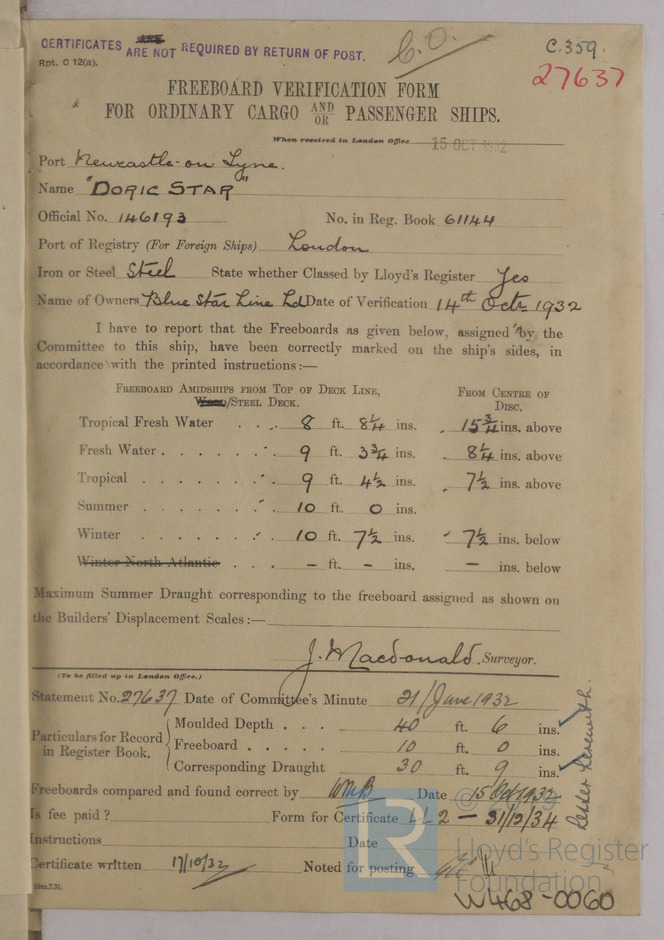 C.O. C.359.
CERTIFICATES ARE NOT REQUIRED BY RETURN OF POST.
Rpt. C 12(a). 27637
FREEBOARD VERIFICATION FORM
FOR ORDINARY CARGO AND/OR PASSENGER SHIPS.
When received in London Office 15 OCT 1932
Port Newcastle-on Tyne.
Name "DORIC STAR"
Official No. 146193 No. in Reg. Book 61144
Port of Registry (For Foreign Ships) London
Iron or Steel Steel State whether Classed by Lloyd's Register Yes
Name of Owners Blue Star Line Ld Date of Verification 14th Octr. 1932
I have to report that the Freeboards as given below, assigned by the
Committee to this ship, have been correctly marked on the ship's sides, in
accordance with the printed instructions:—
FREEBOARD AMIDSHIPS FROM TOP OF DECK LINE, FROM CENTRE OF
WOOD/STEEL DECK. DISC.
Tropical Fresh Water . . . 8 ft. 8 1/4 ins. 15 3/4 ins. above
Fresh Water . . . . . . 9 ft. 3 3/4 ins. 8 1/4 ins. above
Tropical . . . . . . . 9 ft. 4 1/2 ins. 7 1/2 ins. above
Summer . . . . . . . 10 ft. 0 ins.
Winter . . . . . . . 10 ft. 7 1/2 ins. 7 1/2 ins. below
Winter North Atlantic . . . - ft. - ins. - ins. below
Maximum Summer Draught corresponding to the freeboard assigned as shown on
the Builders' Displacement Scales:—
J. Macdonald. Surveyor.
(To be filled up in London Office.)
Statement No. 27637 Date of Committee's Minute 21/June 1932
Particulars for Record in Register Book.
Moulded Depth . . . 40 ft. 6 ins.
Freeboard . . . . . 10 ft. 0 ins.
Corresponding Draught 30 ft. 9 ins.
Letter herewith.
Freeboards compared and found correct by WMB Date 15 Oct 1932
Is fee paid? Form for Certificate LL 2 — 31/12/34
Instructions Date
Certificate written 17/10/32 Noted for posting
10m.7.31.
© 2019
LR
Lloyd's Register
Foundation
W468-0060